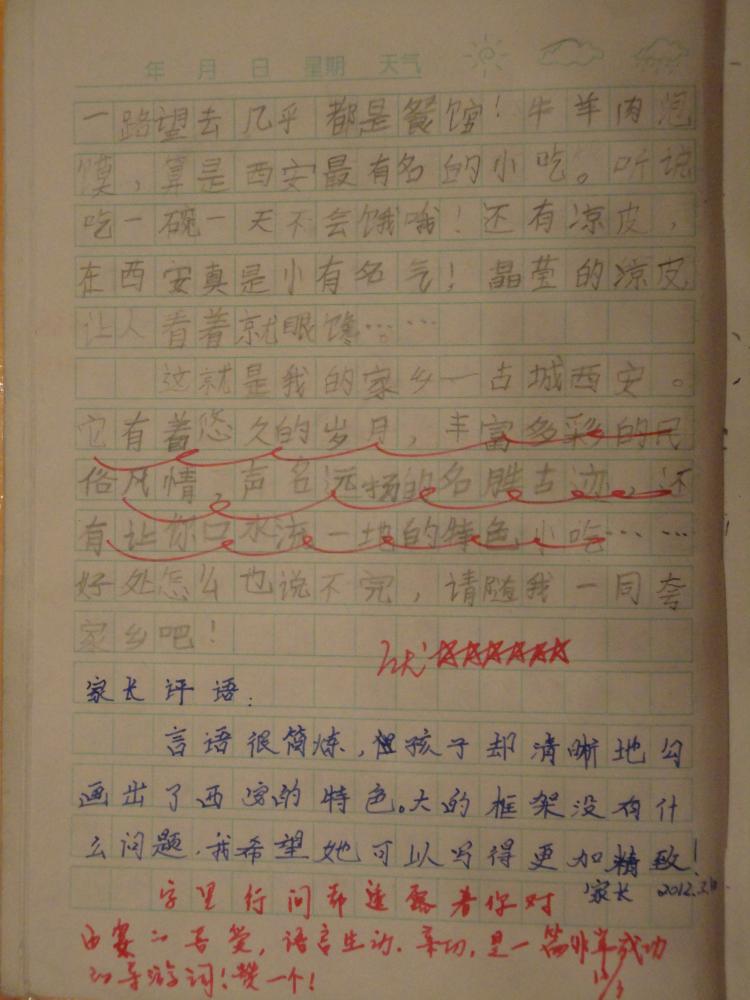 年 月 日 星期 天气
一路望去几乎都是餐馆！牛羊肉泡
馍，算是西安最有名的小吃。听说
吃一碗一天不会饿哦！还有凉皮，
在西安真是小有名气！晶莹的凉皮
让人看着就眼馋……
这就是我的家乡—古城西安。
它有着悠久的岁月，丰富多彩的民
俗风情，声名远扬的名胜古迹，还
有让你口水流一地的特色小吃……
好处怎么也说不完，请随我一同夸
家乡吧！
优☆☆☆☆☆☆
家长评语：
言语很简炼，但孩子却清晰地勾
画出了西安的特色。大的框架没有什
么问题，我希望她可以写得更加精致！
家长 2012.3.
字里行间都透露着你对
西安的喜爱，语言生动、亲切，是一篇非常成功
的导游词！赞一个！